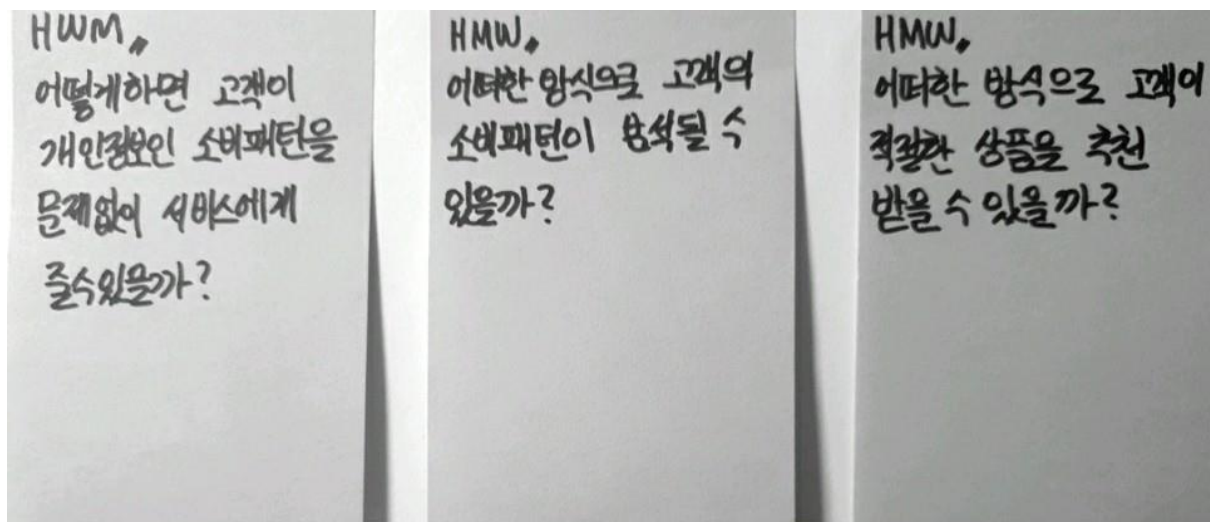 HWM〃
어떻게하면 고객이
개인정보인 소비패턴을
문제없이 서비스에게
줄수있을까?
HMW〃
어떠한 방식으로 고객의
소비패턴이 분석될 수
있을까?
HMW〃
어떠한 방식으로 고객이
적절한 상품을 추천
받을 수 있을까?